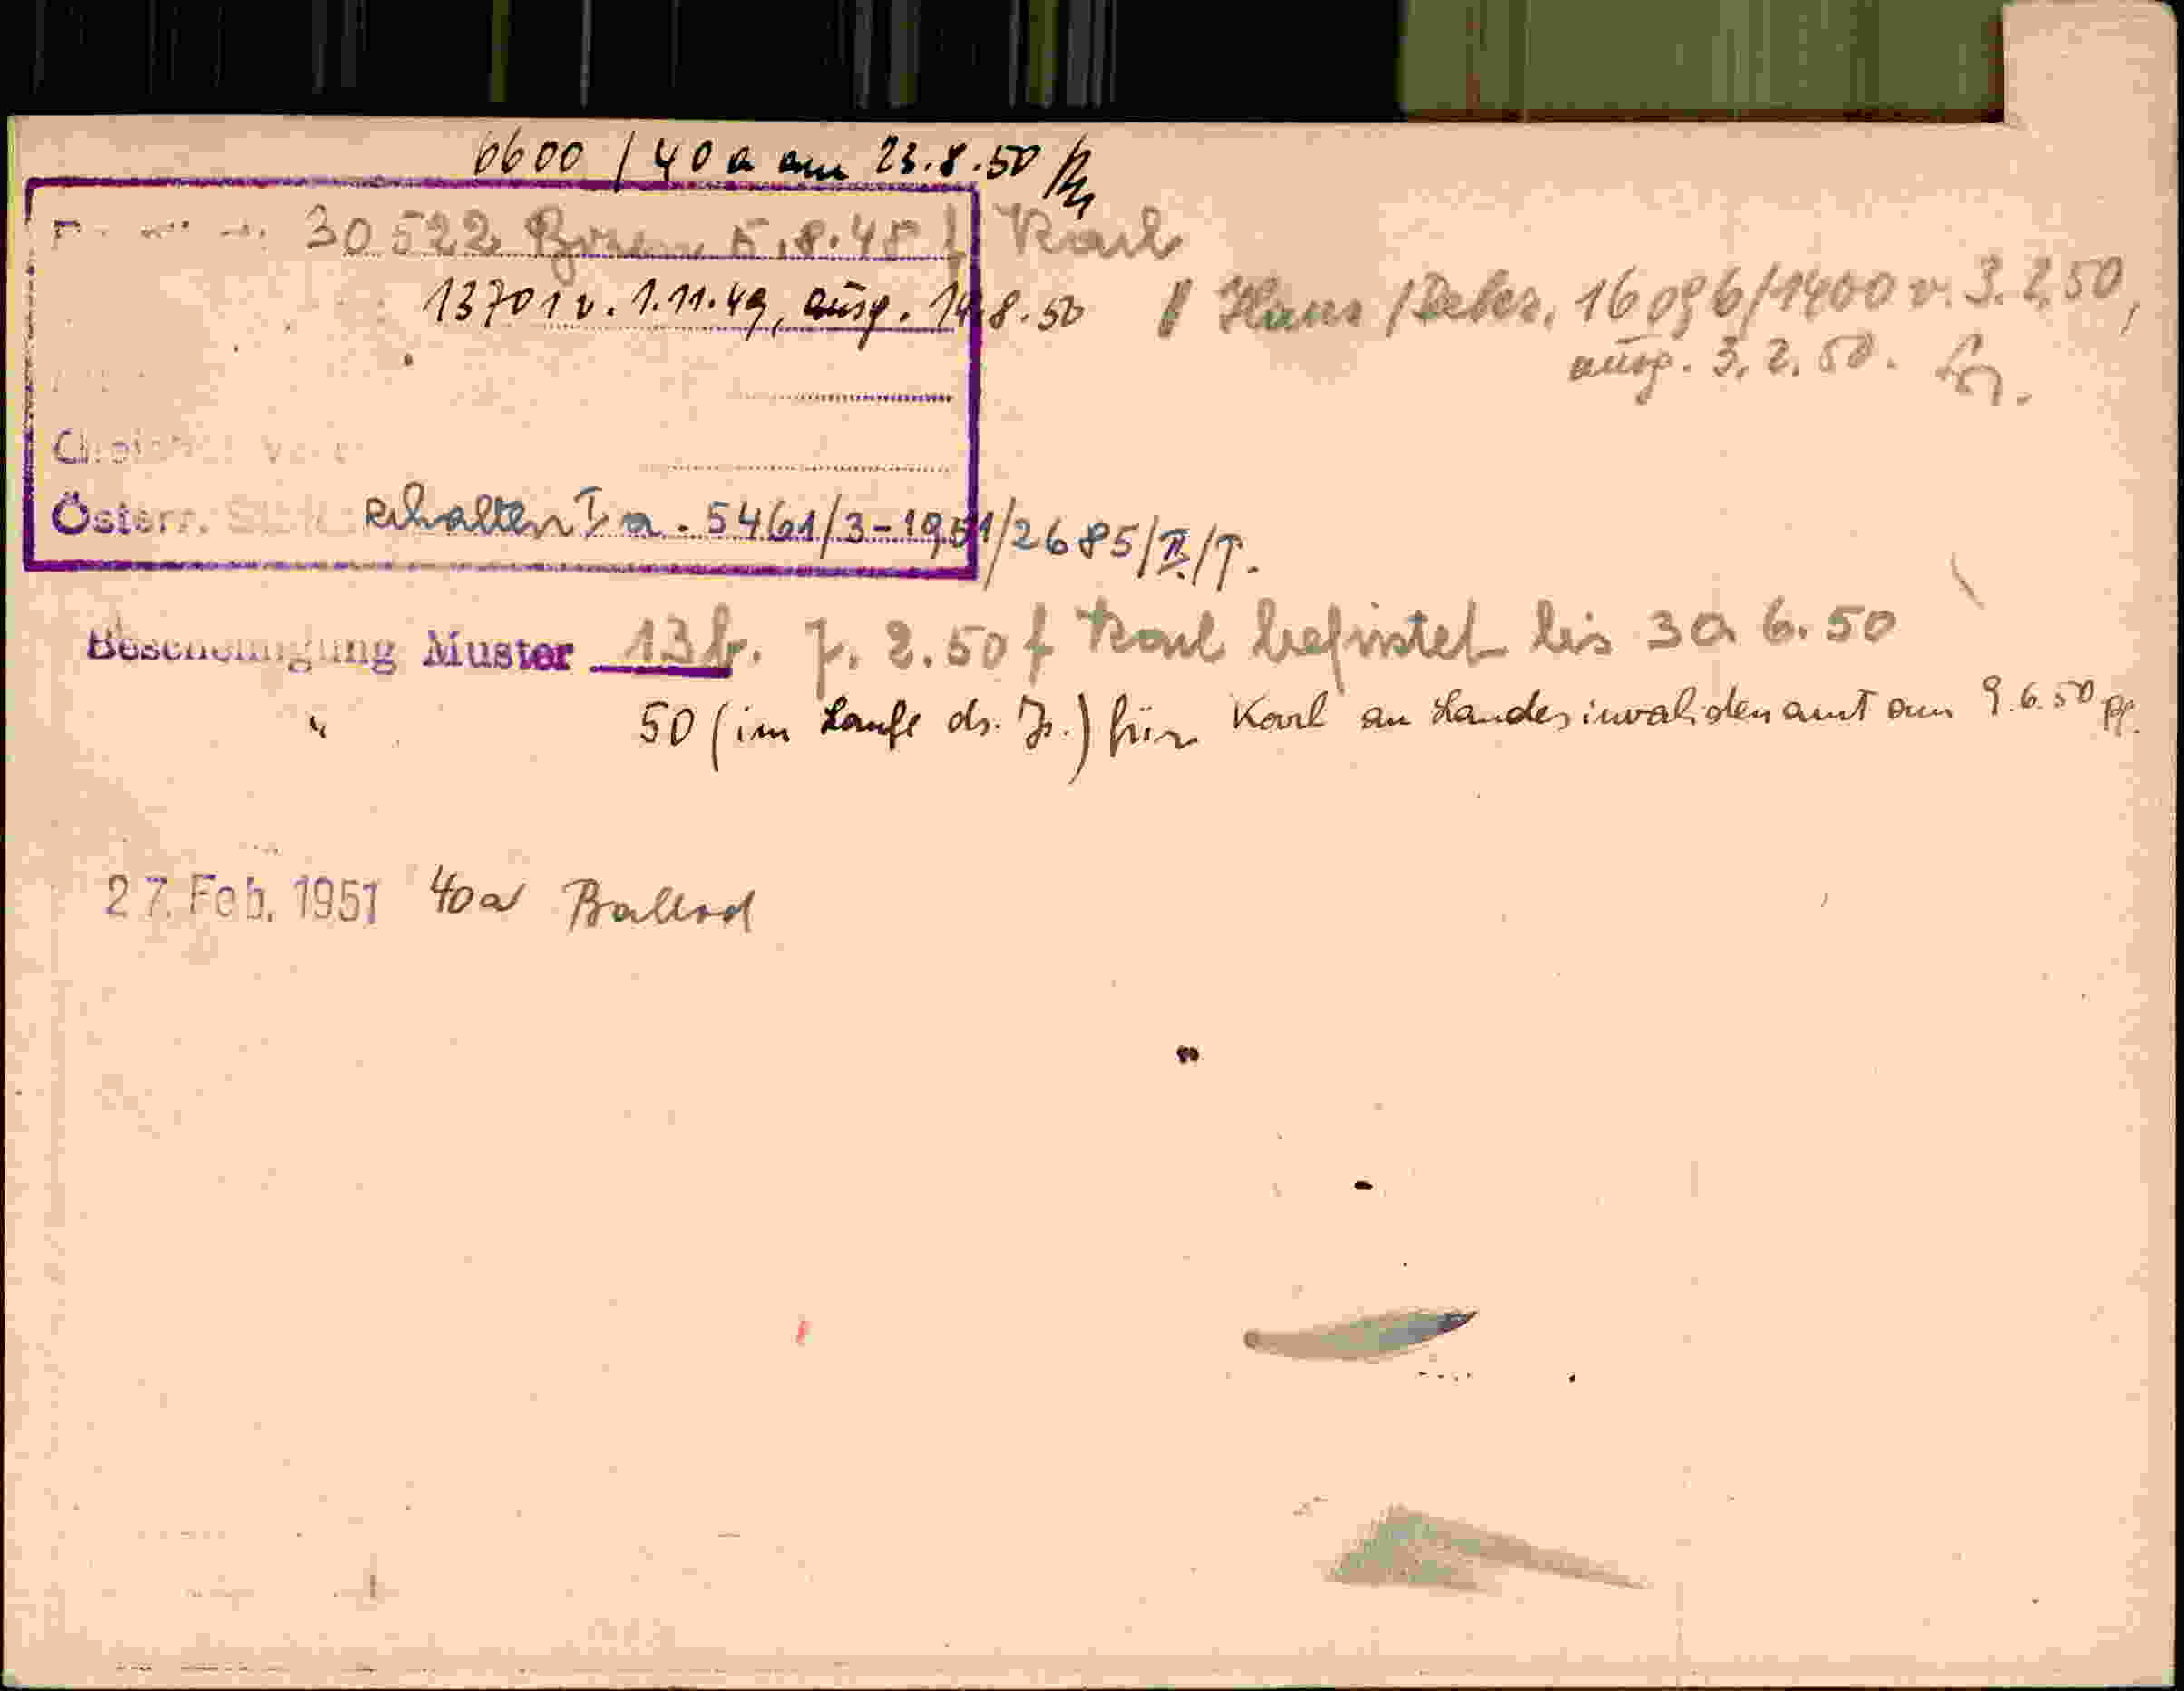 6600 / 40 a am 23.8.50
30522 5.8.48 f Karl
13701 v. 1.11.49, ausg. 14.8.50 f Hans / 16096/1400 v. 3.2.50,
ausg. 3.2.50.
Österr. erhalten I a. 5461/3-1951/2685/II/T.
Bescheinigung Muster 13b. 7.2.50 f Karl befristet bis 30.6.50
" 50 (im Laufe ds. Js.) für Karl an Landesinvalidenamt am 9.6.50
27. Feb. 1951 40a Ballod